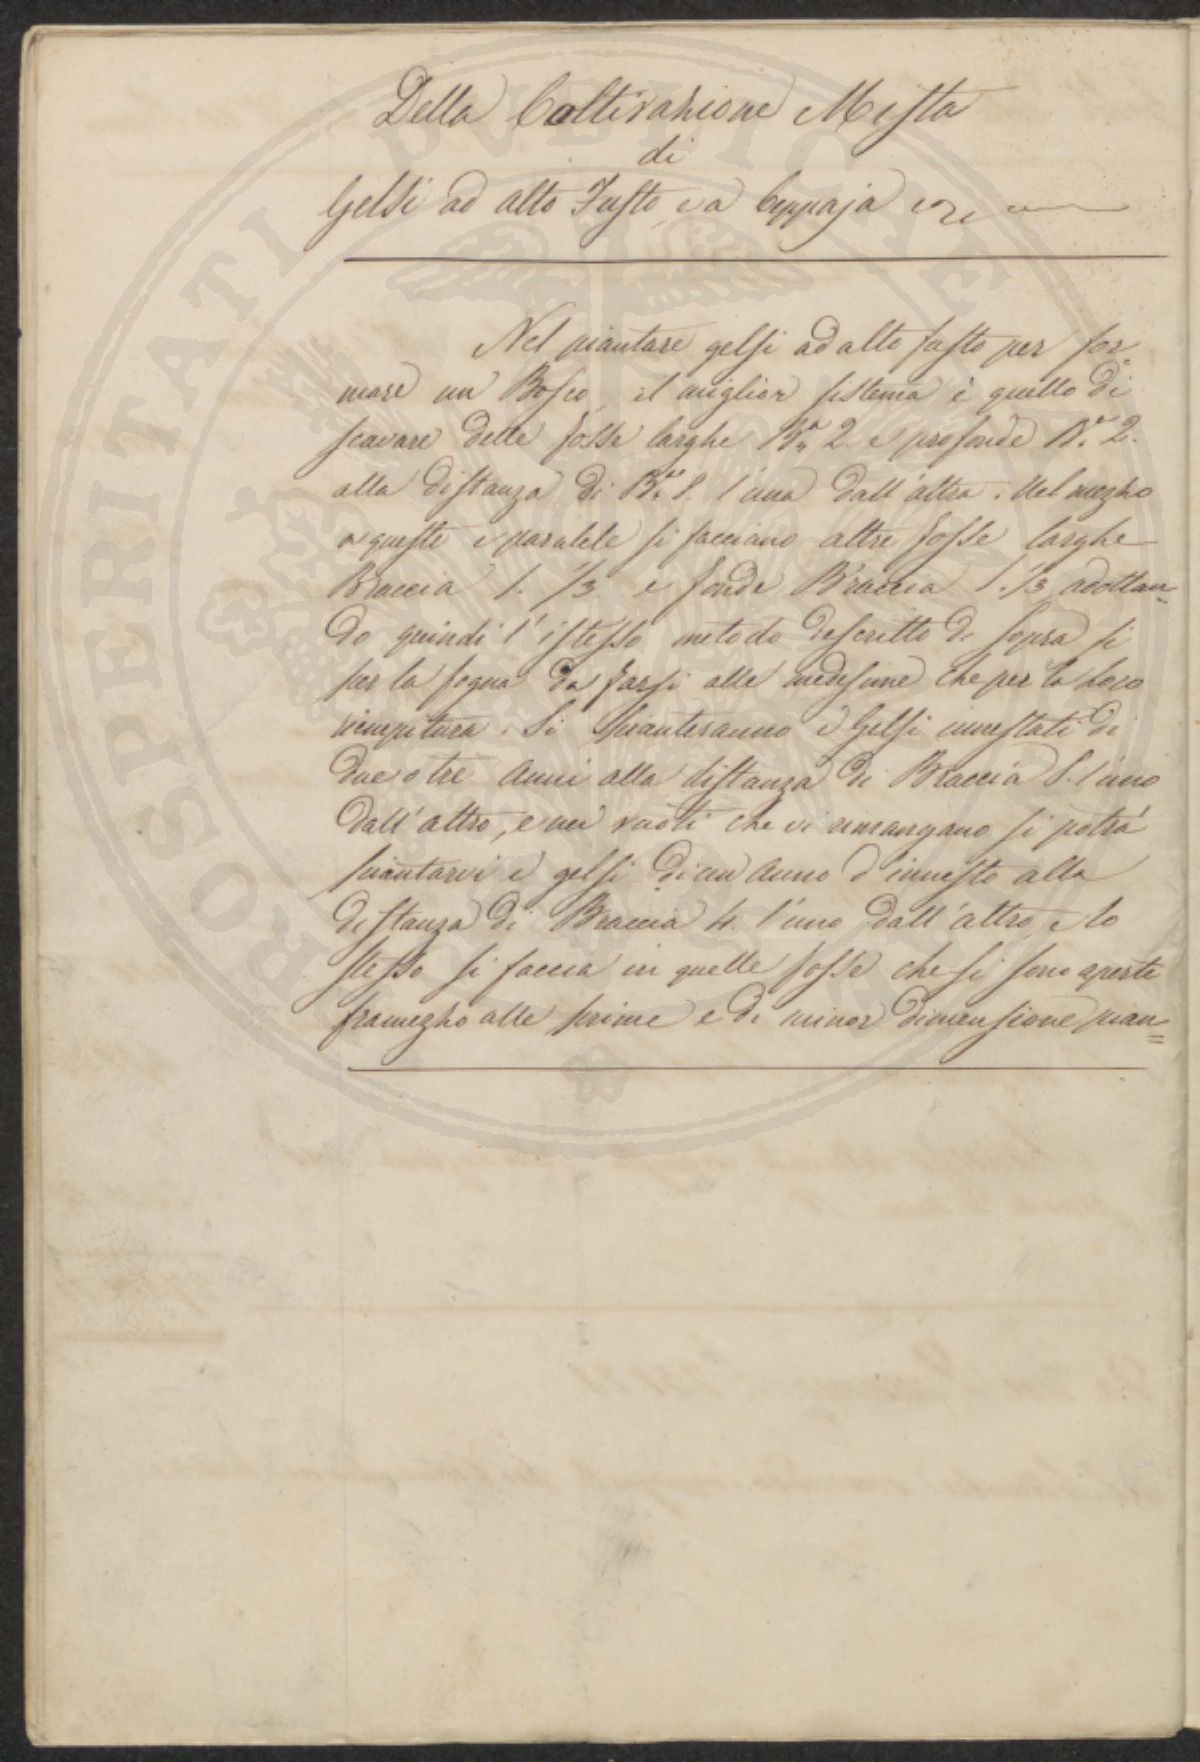 Della Coltivazione Mista
di
Gelsi ad alto Fusto, e a Ceppaja
Nel piantare gelsi ad alto fusto per for=
mare un Bosco, il miglior sistema è quello di
scavare delle fosse larghe Bra 2. e profonde Bra 2.
alla distanza di Bra 8. l'una dall'altra. Nel mezzo
a queste e paralele si facciano altre fosse larghe
Braccia 1. 1/3 e fonde Braccia 1. 1/3 adottan=
do quindi l'istesso metodo descritto di sopra si
per la fogna da farsi alle medesime che per la loro
riempitura. Si pianteranno i Gelsi innestati di
due o tre anni alla distanza di Braccia 8. l'uno
dall'altro, e nei vuoti che vi rimangano si potrà
piantarvi i gelsi di un anno d'innesto alla
distanza di Braccia 4. l'uno dall'altro, e lo
stesso si faccia in quelle fosse che si sono aperte
framezzo alle prime e di minor dimensione pian=
PROSPERITATI PUBLICAE